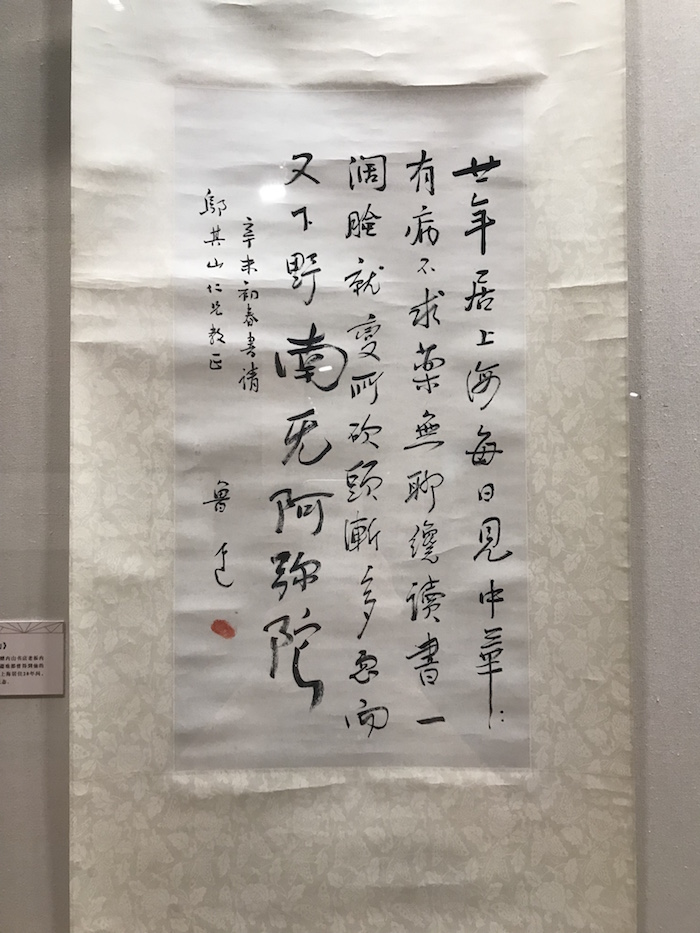 廿年居上海每日見中華
有病不求藥無聊纔讀書一
阔臉就變所砍頭漸多忽而
又下野南无阿弥陀
辛未初春書請
鄔其山仁兄教正
魯迅